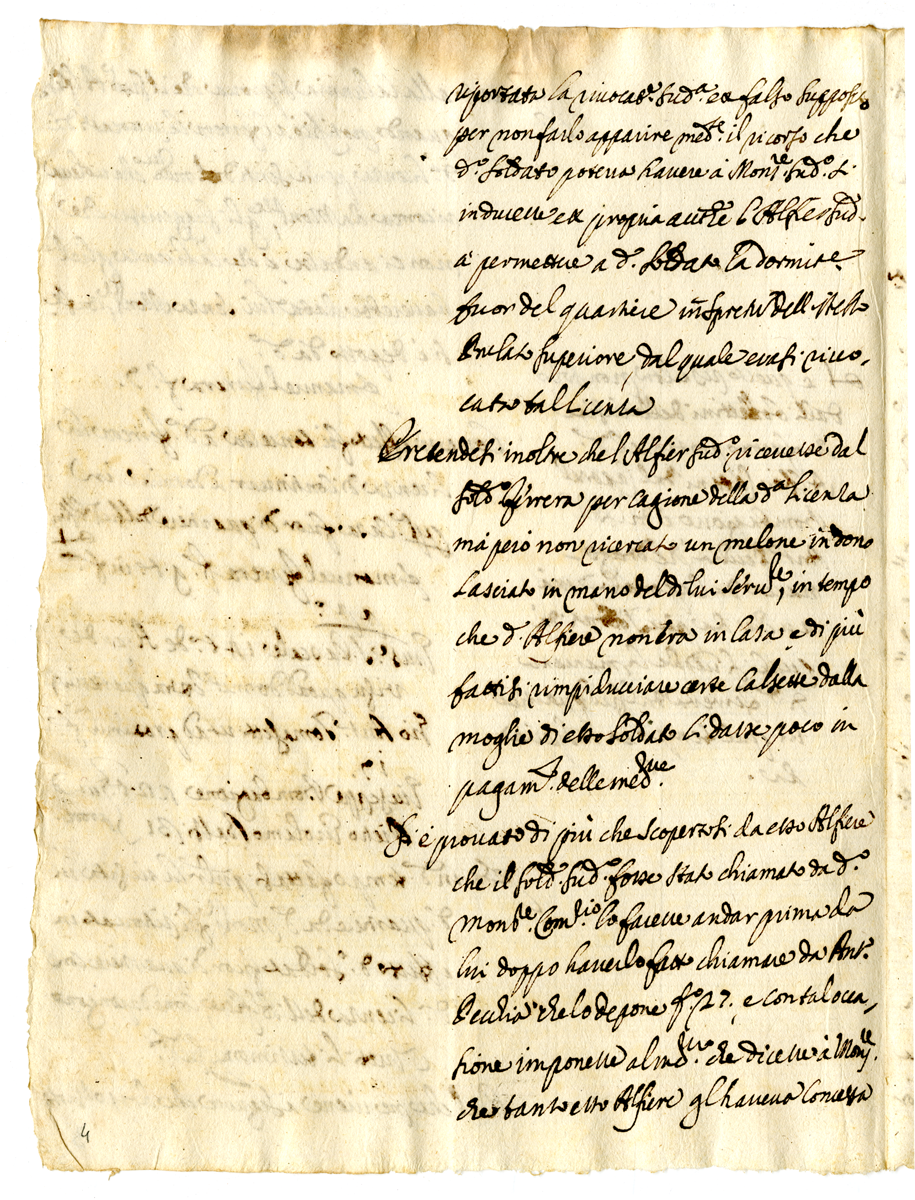 riportata la rivocat.e sud.a ex falso suppost
per non farlo apparire med.te il ricorso che
d.o Soldato poteva havere à Mons.re sud.o si
inducette ex propria auth.e l'Alfier sud.
à permettere a d.o Soldato la dormit.e
fuor del quartiere in spretu dell'istesso
Prelato Superiore, dal quale erasi rivo-
cata tal licenza
Pretendesi inoltre che l'Alfier sud.o ricevesse dal
sold.o Utrera per cagione della d.a licenza
mà però non ricercato un melone in dono
lasciato in mano del di lui Serv.le, in tempo
che d.o Alfiere non era in Casa e di più
fattisi rimpiducciare certe Calzette dalla
moglie di esso Soldato li dasse poco in
pagam.to delle med.me
Si è provato di più che scopertosi da esso Alfiere
che il sold.o sud.o fosse stato chiamato da d.o
Mons.re Com.rio lo facesse andar prima da
lui doppo haverlo fatto chiamare da Ant.o
che lo depone f.o 727. e con tal occa-
sione imponesse al med.mo che dicesse à Mons.re
che tanto esso Alfiere gl'haveva concessa
4